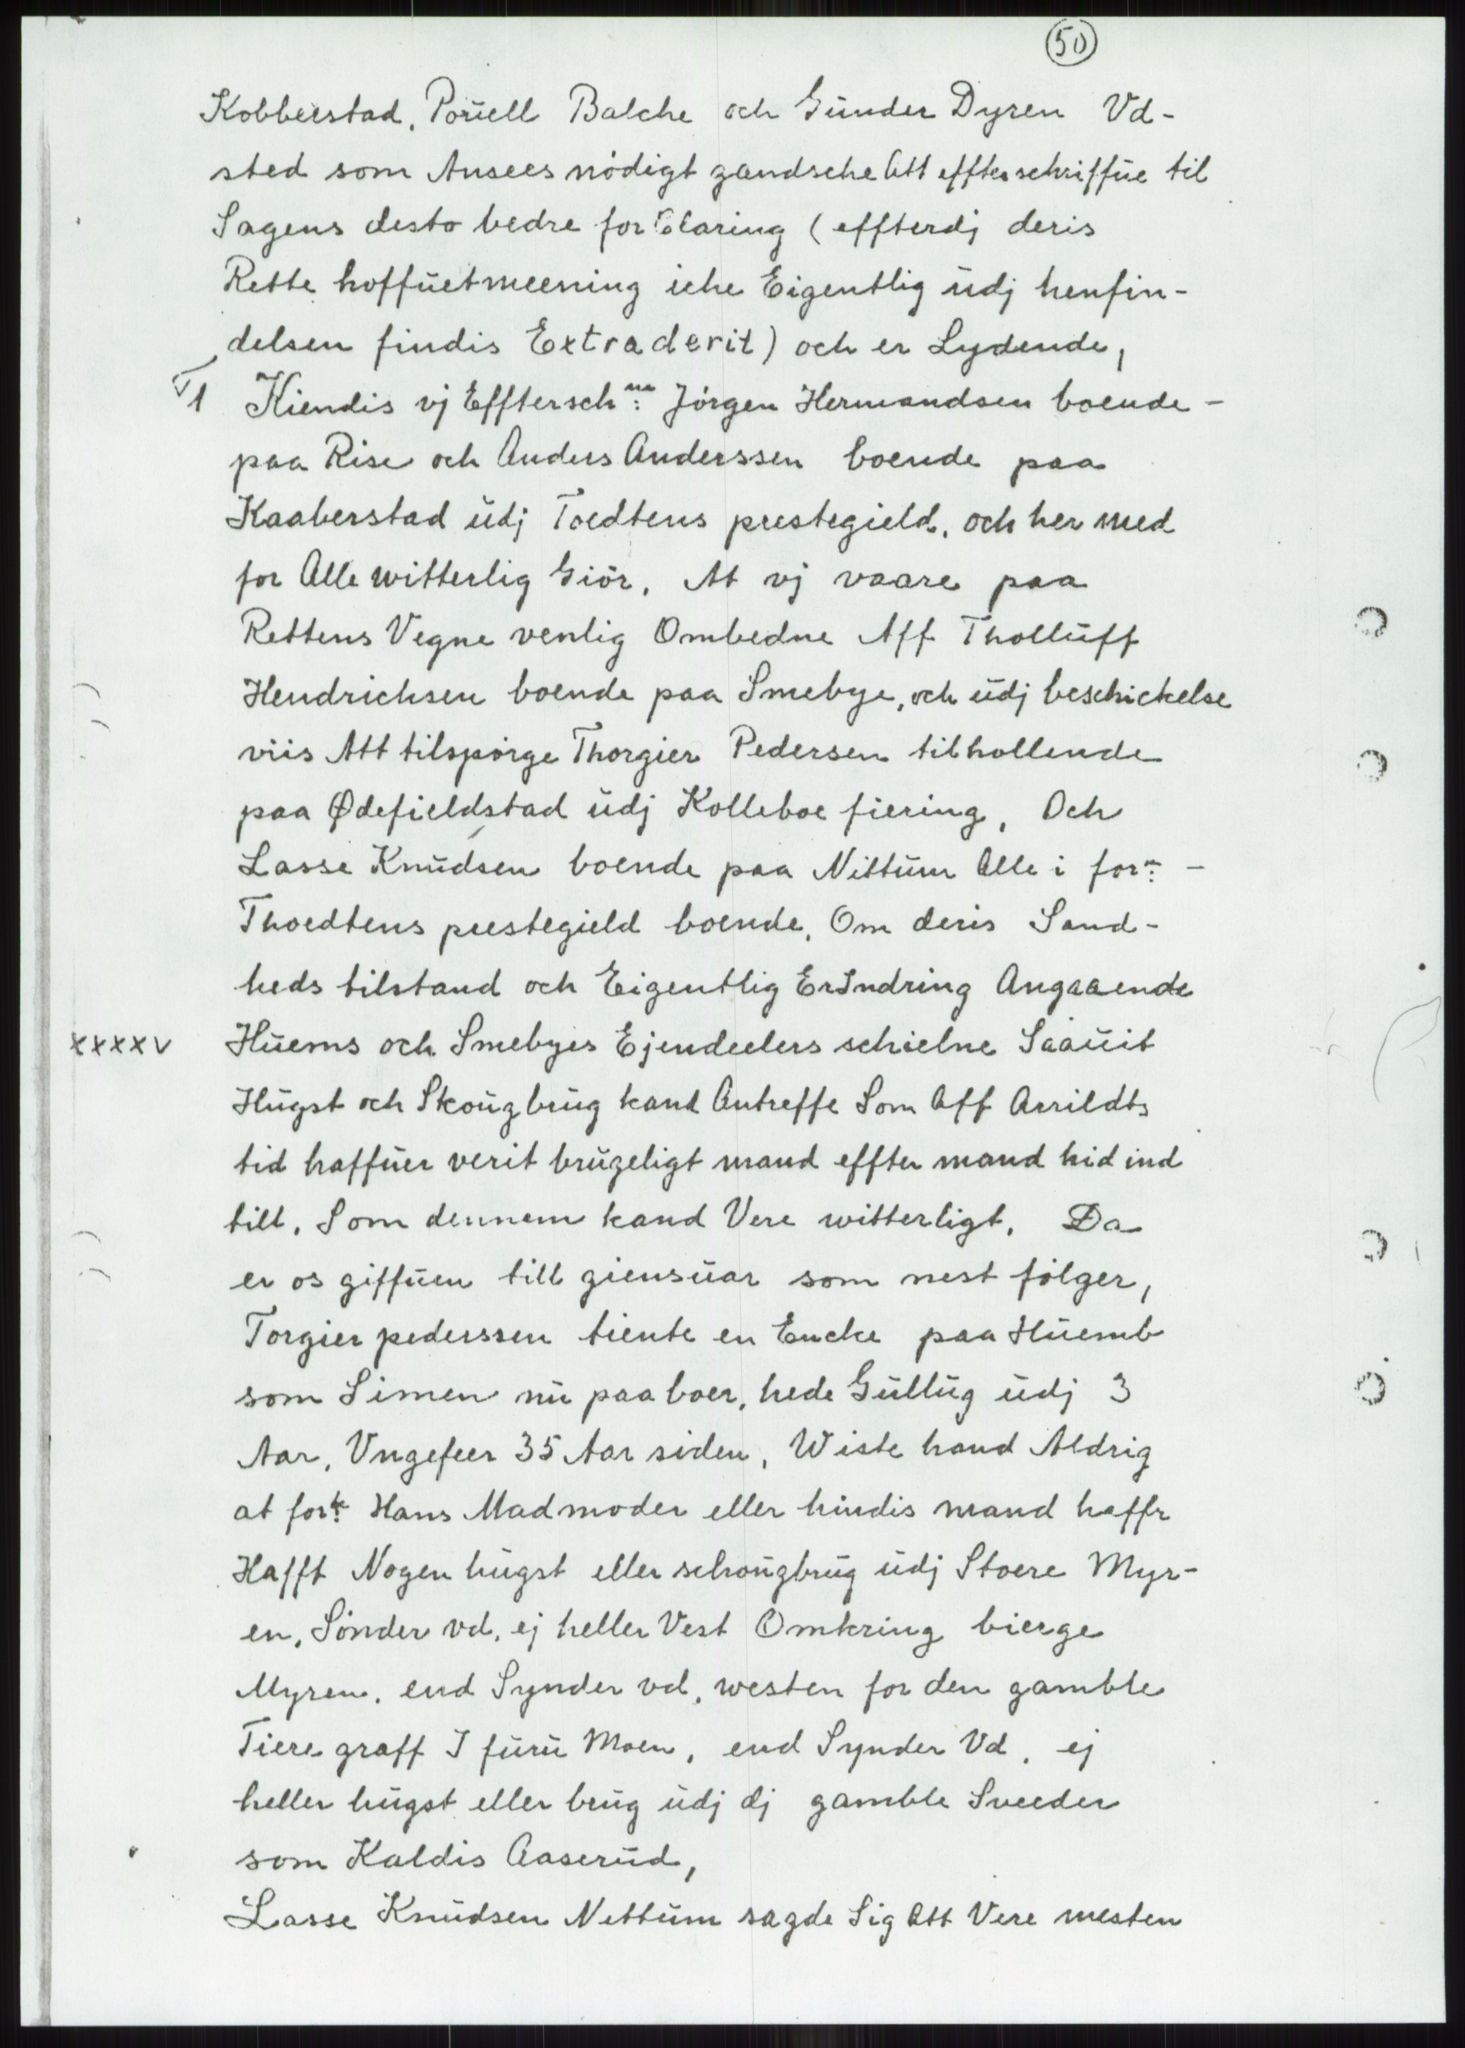 50
Kobberstad, Poruell Balche och Gúnder Dyren Vd-
sted som Ansees nödigt gandsche Att effterschriffúe til
Sagens desto bedre for Claring (effterdj deris
Rette hoffúetmeening iche Eigentlig údj henfin-
delsen findis Extraderit) och er Lydende,
1 Kiendis vj Efftersch:ne Jörgen Hermandsen boende -
paa Rise och Anders Anderssen boende paa
Kaaberstad údj Toedtens prestegield, och her med
for Alle witterlig Giör, At vj vaare paa
Rettens Vegne venlig Ombedne Aff Tholluff
Hendrichsen boende paa Smebye, och údj beschickelse
viis Att tilspörge Thorgier Pedersen tilhollende
paa Ødefieldstad údj Kolleboe fiering, Och
Lasse Knúdsen boende paa Nittúm Alle i for:n -
Thoedtens prestegield boende, Om deris Sand-
heds tilstand och Eigentlig Erindring Angaaende
xxxxv Húems och Smebyes Ejendeelers schielne Saaúit
Húgst och Skoúgbrúg kand Antreffe Som Aff Arrildts
tid haffúer verit brúgeligt mand effter mand hid ind
till, Som dennem kand Vere witterligt, Da
er os giffúen till giensúar som nest fölger,
Torgier pederssen tiente en Encke paa Húemb
som Simen nú paa boer, hede Gúllúg údj 3
Aar, Vngefeer 35 Aar siden, Wiste hand Aldrig
at for:te Hans Madmoder eller hindis mand haffr
Hafft Nogen húgst eller schoúgbrúg údj Stoere Myr-
en, Sönder vd, ej heller Vest Omkring bierge
Myren, end Synder vd, westen for den gamble
Tiere graff I fúrú Moen, end Synder Vd, ej
heller húgst eller brúg údj dj gamble Sveeder
som Kaldis Aaserúd,
Lasse Knúdsen Nettúm sagde Sig Att Vere mesten